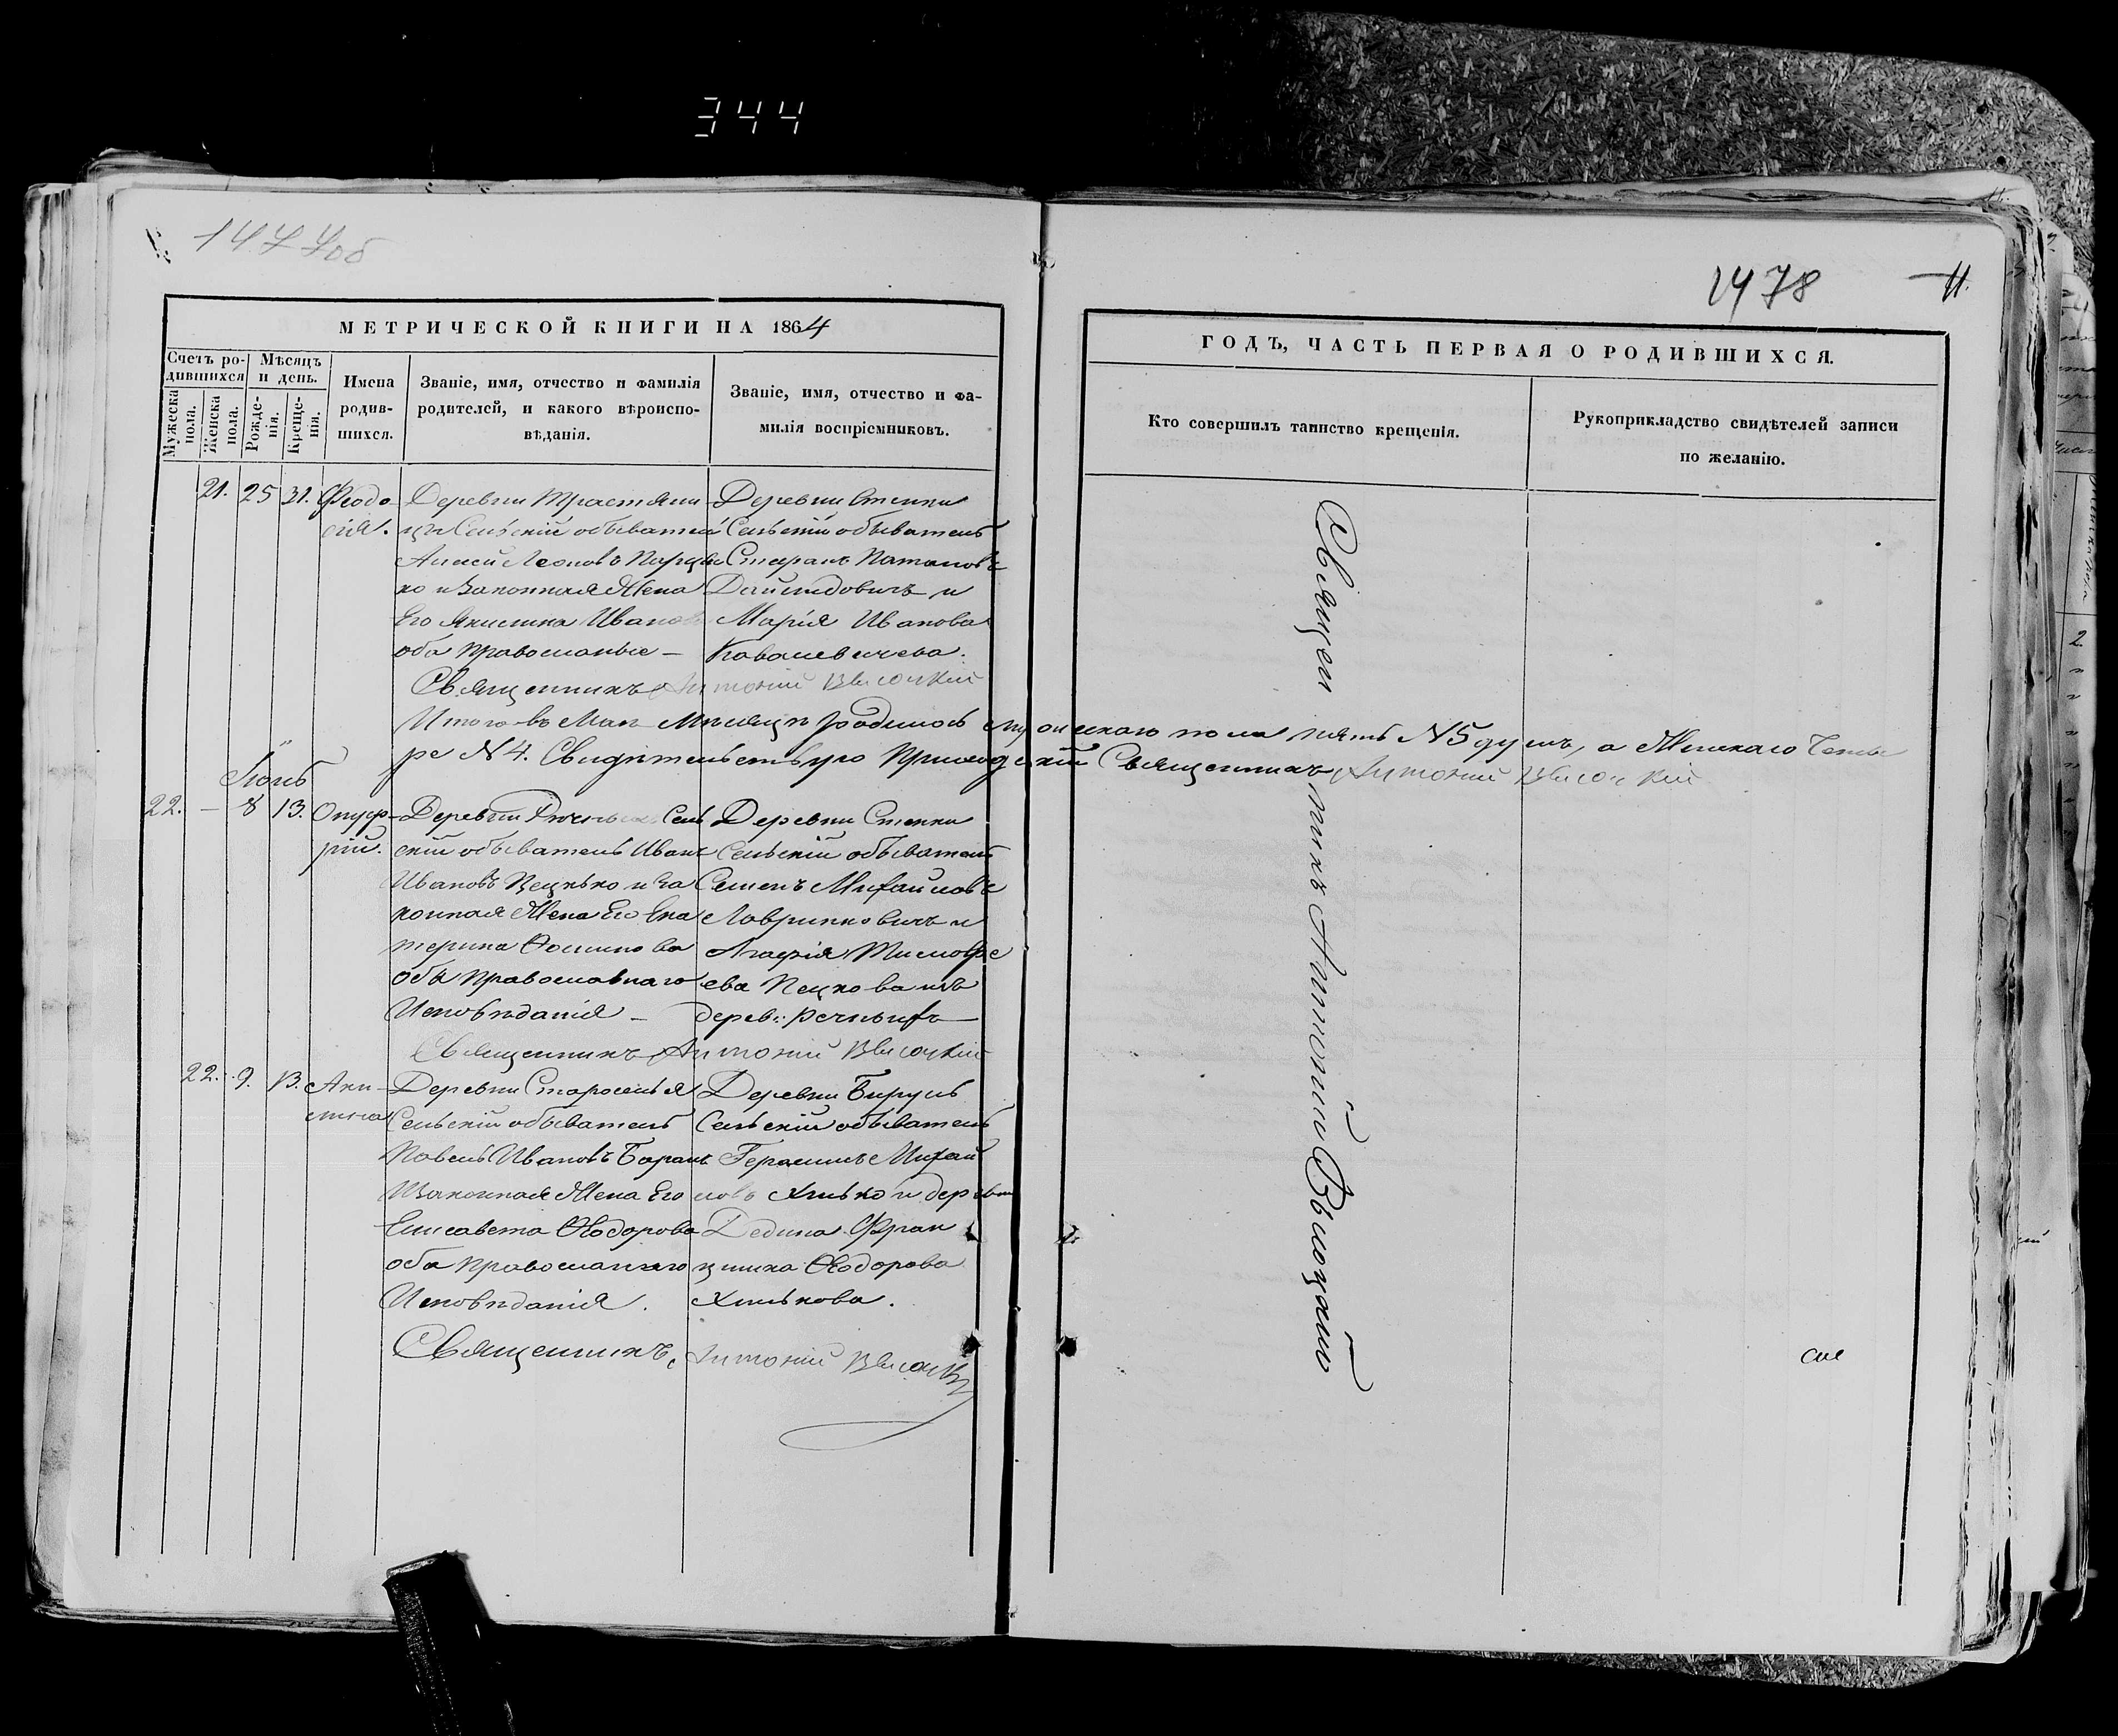 344
1477об
1478
11.
МЕТРИЧЕСКОЙ КНИГИ НА 1864
Счетъ ро-
дившихся
Мужеска
пола.
Женска
пола.
Мѣсяцъ
и день.
Рожде-
нія.
Креще-
нія.
Имена
родив-
шихся.
Званіе, имя, отчество и фамилія
родителей, и какого вѣроиспо-
вѣданія.
Званіе, имя, отчество и фа-
милія воспріемниковъ.
ГОДЪ, ЧАСТЬ ПЕРВАЯ О РОДИВШИХСЯ.
Кто совершилъ таинство крещенія.
Рукоприкладство свидѣтелей записи
по желанію.
21. 25 31. Феодо-
сія.
Деревни
Сельскій обыватель
Леоновъ
ко и Законная Жена
Его Акилина Иванова
оба православные –
Деревни Стенки
Сельскій обыватель
Потаповъ
и
Марія Иванова
Ковалевичева.
Священникъ Антоній Высоцкій
Итого въ Маѣ Мѣсяцѣ родилось мужескаго пола пять N5 душъ, а Женскаго Четы
ре N 4. Свидѣтельствую Приходскій Священникъ Антоній Высоцкій
Іюнь
22. – 8 13. Онуф-
рій.
Деревни Сель
скій обыватель Иванъ
Ивановъ Пецько и за
конная Жена Его Ека
терина
оба православнаго
Исповѣданія –
Деревни Стенки
Сельскій обыватель
Семенъ Михайловъ
Лавринковичъ и
Агафія Тимофе
ева Пецкова изъ
дерев: Речныхъ
Священникъ Антоній Высоцкій
22. 9. 13. Аки-
лина
Деревни Староселья
Сельскій обыватель
Павелъ Ивановъ Баранъ
Изаконная Жена Его
Елисавета Ѳеодорова
оба православнаго
Исповѣданія.
Деревни
Сельскій обыватель
Герасимъ Михай
ловъ Хилько и деревни
Дедина Фран
цишка Ѳеодорова
Хилькова.
Священникъ Антоній Высоцкій
Священникъ Антоній Высоцкій